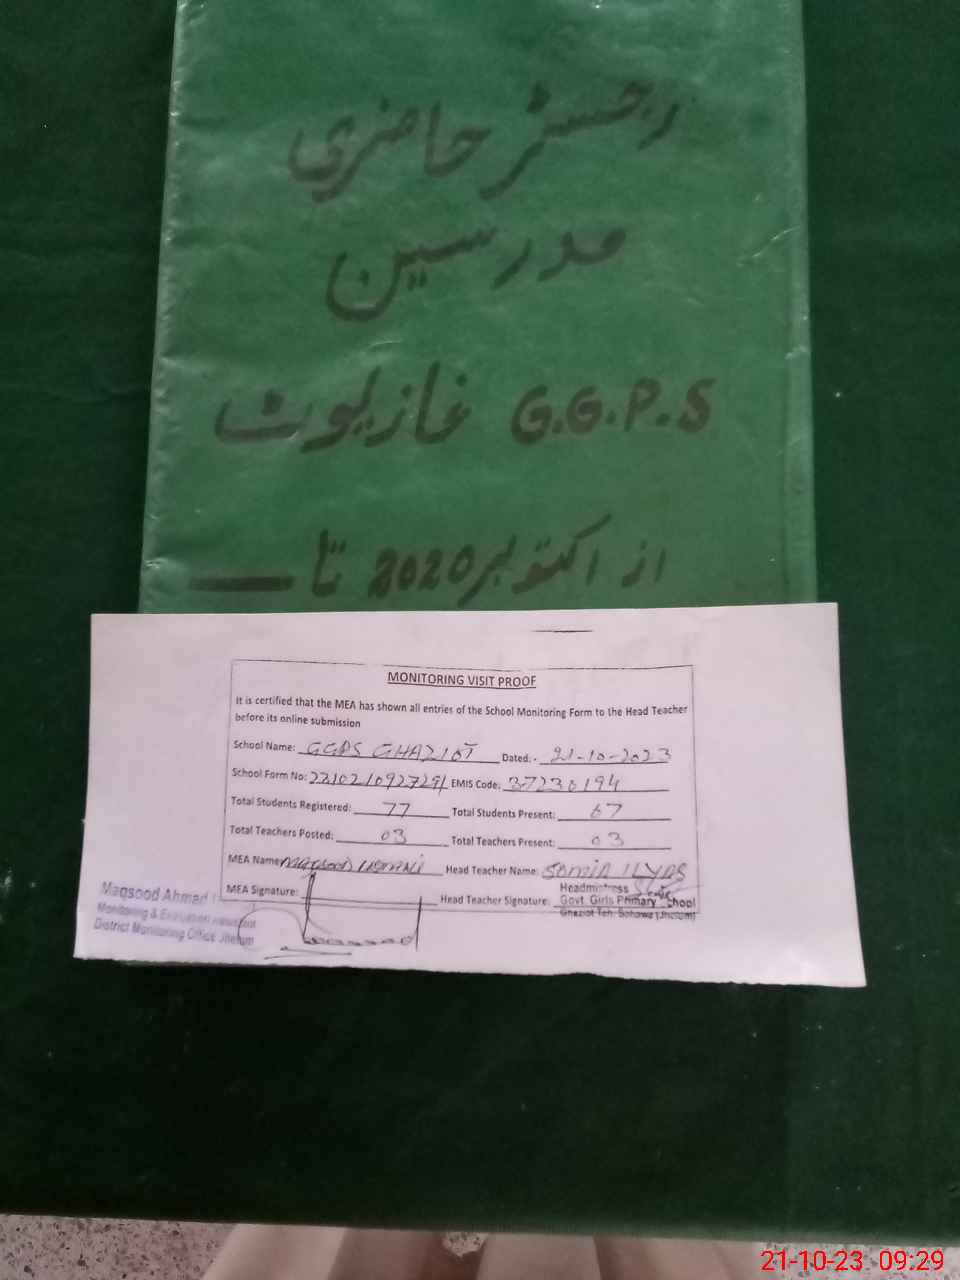 رجسٹر حاضری
مدرسین
G.G.P.S غازیوٹ
از اکتوبر 2020 تا
MONITORING VISIT PROOF
It is certified that the MEA has shown all entries of the School Monitoring Form to the Head Teacher
before its online submission
School Name: GGPS GHAZIOT Dated:- 21-10-2023
School Form No: 2210210927291 EMIS Code: 37230194
Total Students Registered: 77 Total Students Present: 67
Total Teachers Posted: 03 Total Teachers Present: 03
MEA Name Maqsood Head Teacher Name: SAMIA ILYAS
MEA Signature: Head Teacher Signature:
Headmistress
Govt. Girls Primary School
Ghaziot Teh. Sohawa (Jhelum)
Maqsood Ahmad
Monitoring & Evaluation Assistant
District Monitoring Office Jhelum
21-10-23 09:29